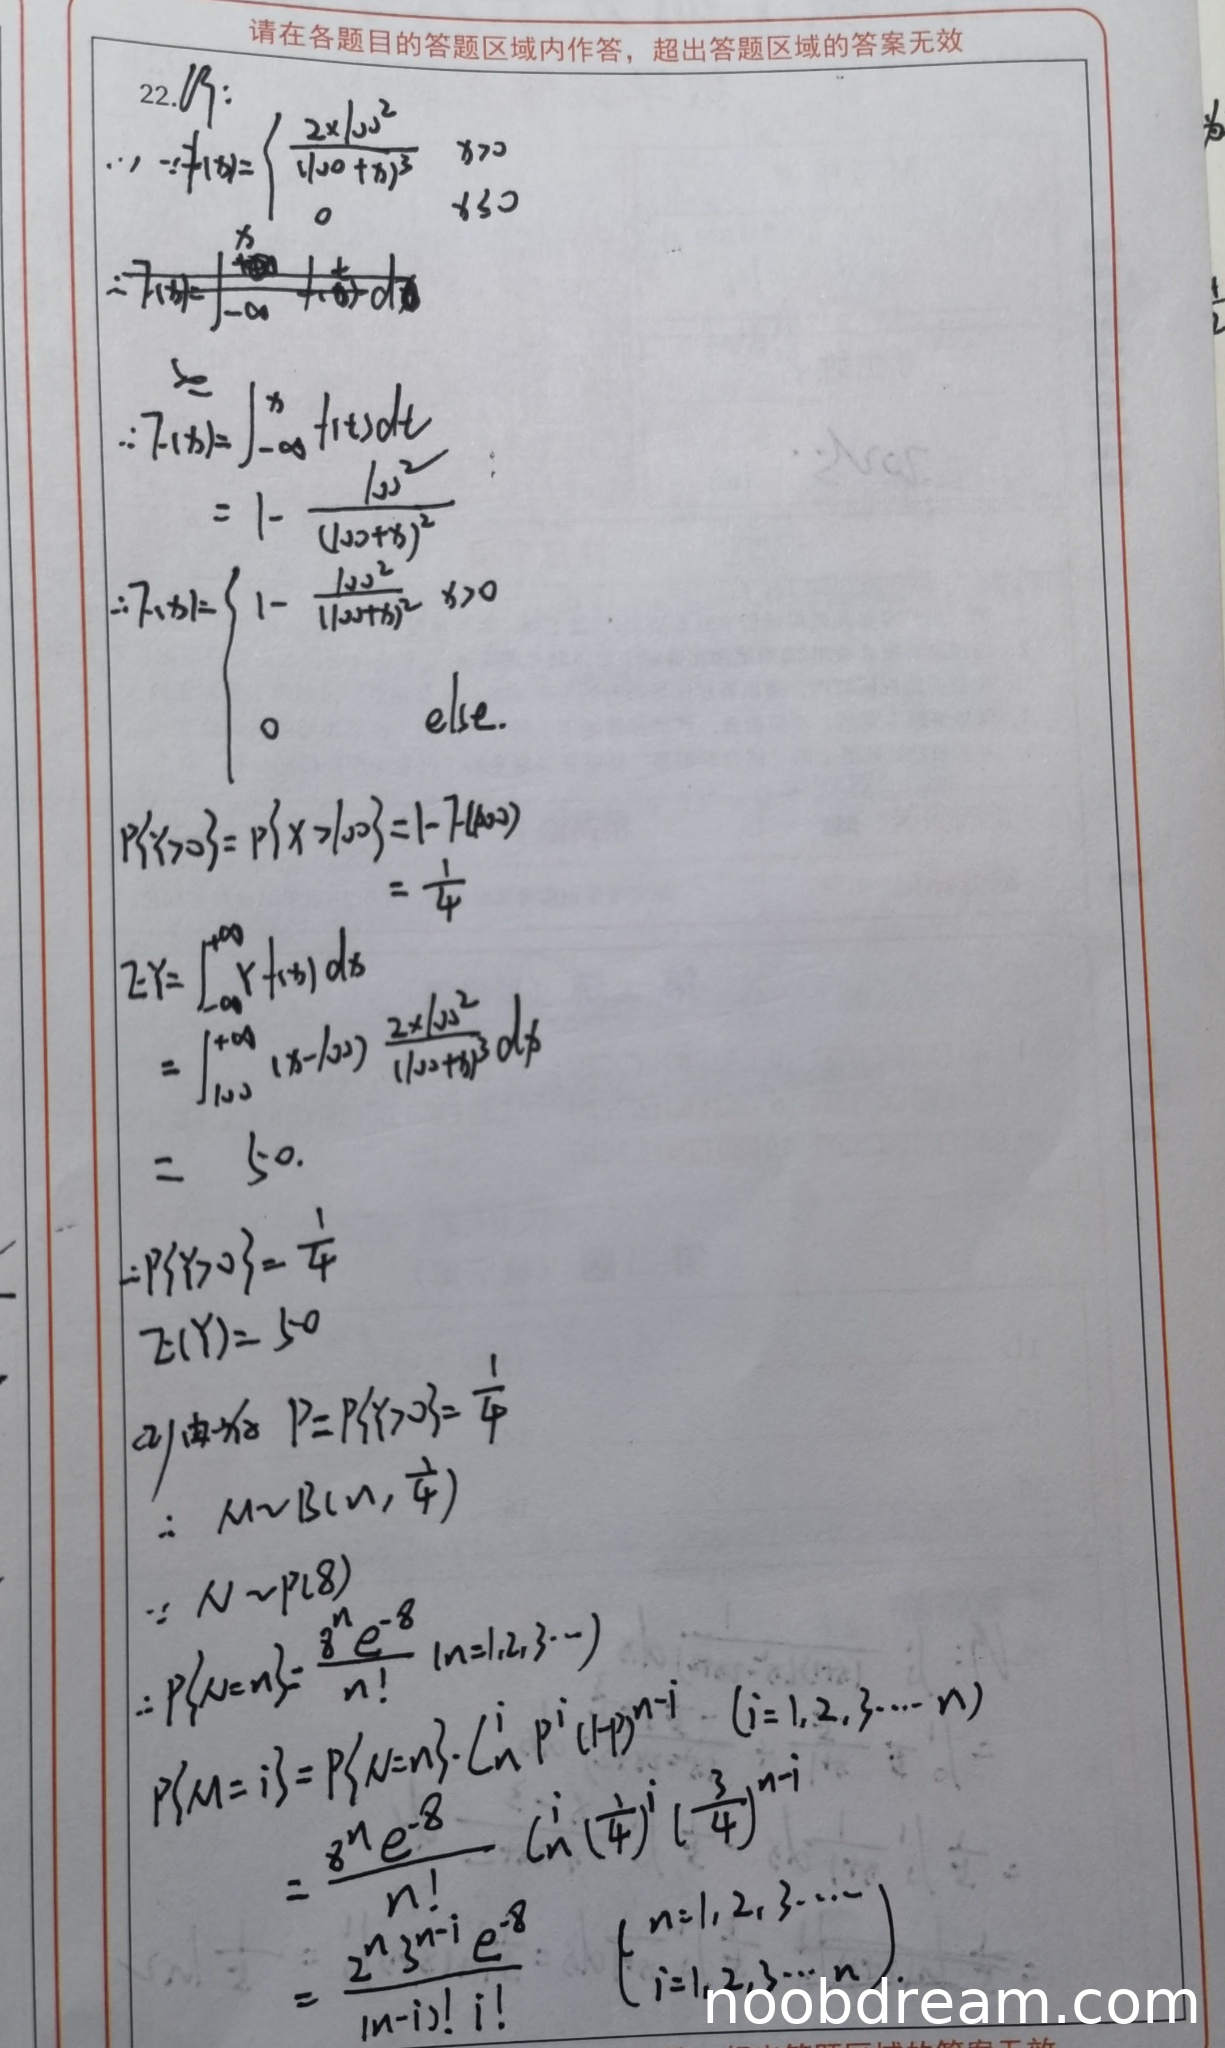 请在各题目的答题区域内作答，超出答题区域的答案无效
22.解:
∵f(x)={ 2×100²/(100+x)³ x>0
0 x≤0
∴F(x)=∫_{-∞}^{x} f(t)dt
= 1- 100²/(100+x)²
∴F(x)={ 1- 100²/(100+x)² x>0
0 else.
P{Y>0}=P{X>100}=1-F(100)
= 1/4
EY=∫_{-∞}^{+∞} Y f(x) dx
=∫_{100}^{+∞} (x-100) 2×100²/(100+x)³ dx
= 50.
∴P{Y>0}=1/4
E(Y)=50
(2) P=P{Y>0}=1/4
∴ M~B(n, 1/4)
∵ N~P(8)
∴P{N=n}= 8ⁿe⁻⁸/n! (n=1,2,3…)
P{M=i}=P{N=n}·C_n^i P^i (1-P)^{n-i} (i=1,2,3…… n)
= 8ⁿe⁻⁸/n! C_n^i (1/4)^i (3/4)^{n-i}
= 2ⁿ3^{n-i}e⁻⁸/(n-i)! i! (n=1,2,3……
i=1,2,3… n).
noobdream.com